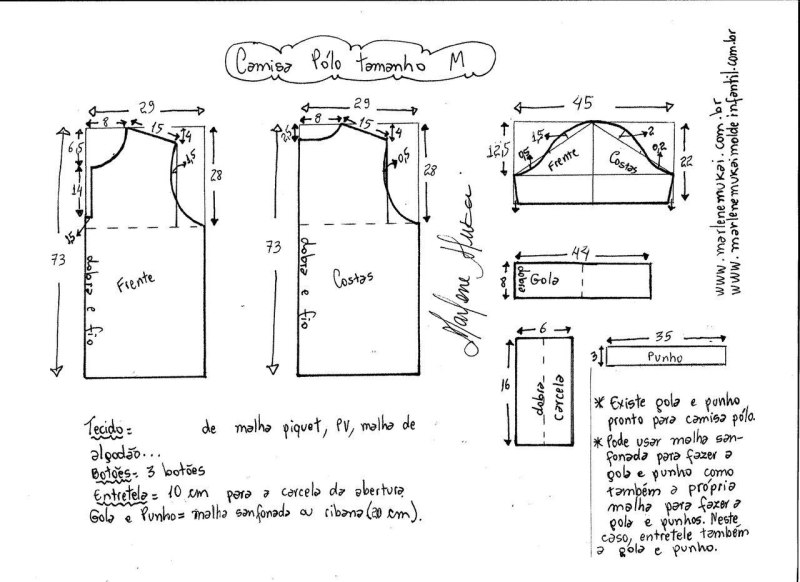 Camisa Pólo tamanho M
29
8
15
4
6,5
14
1,5
1,5
28
73
dobra e fio
Frente
29
8
15
4
2,5
0,5
28
73
dobra e fio
Costas
Marlene Mukai
45
12,5
0,5
1,5
2
0,2
22
Frente
Costas
44
8
dobra
Gola
6
16
dobra
carcela
35
3
Punho
www.marlenemukai.com.br
www.marlenemukaimoldeinfantil.com.br
Tecido= de malha piquet, PV, malha de
algodão...
Botões= 3 botões
Entretela= 10 cm para a carcela da abertura
Gola e Punho= malha sanfonada ou ribana (20 cm).
* Existe gola e punho
pronto para camisa pólo.
* Pode usar malha san-
fonada para fazer a
gola e punho como
também a própria
malha para fazer a
gola e punhos. Neste
caso, entretele também
a góla e punho.